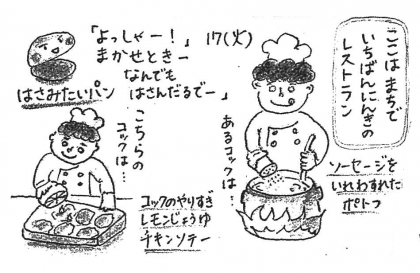 ここは まちで
いちばんにんきの
レストラン
17(火)
「よっしゃー！」
まかせときー
なんでも
はさんだるでー」
はさみたいパン
あるコックは…
ソーセージを
いれわすれた
ポトフ
こちらの
コックは…
コックのやりすぎ
レモンじょうゆ
チキンソテー